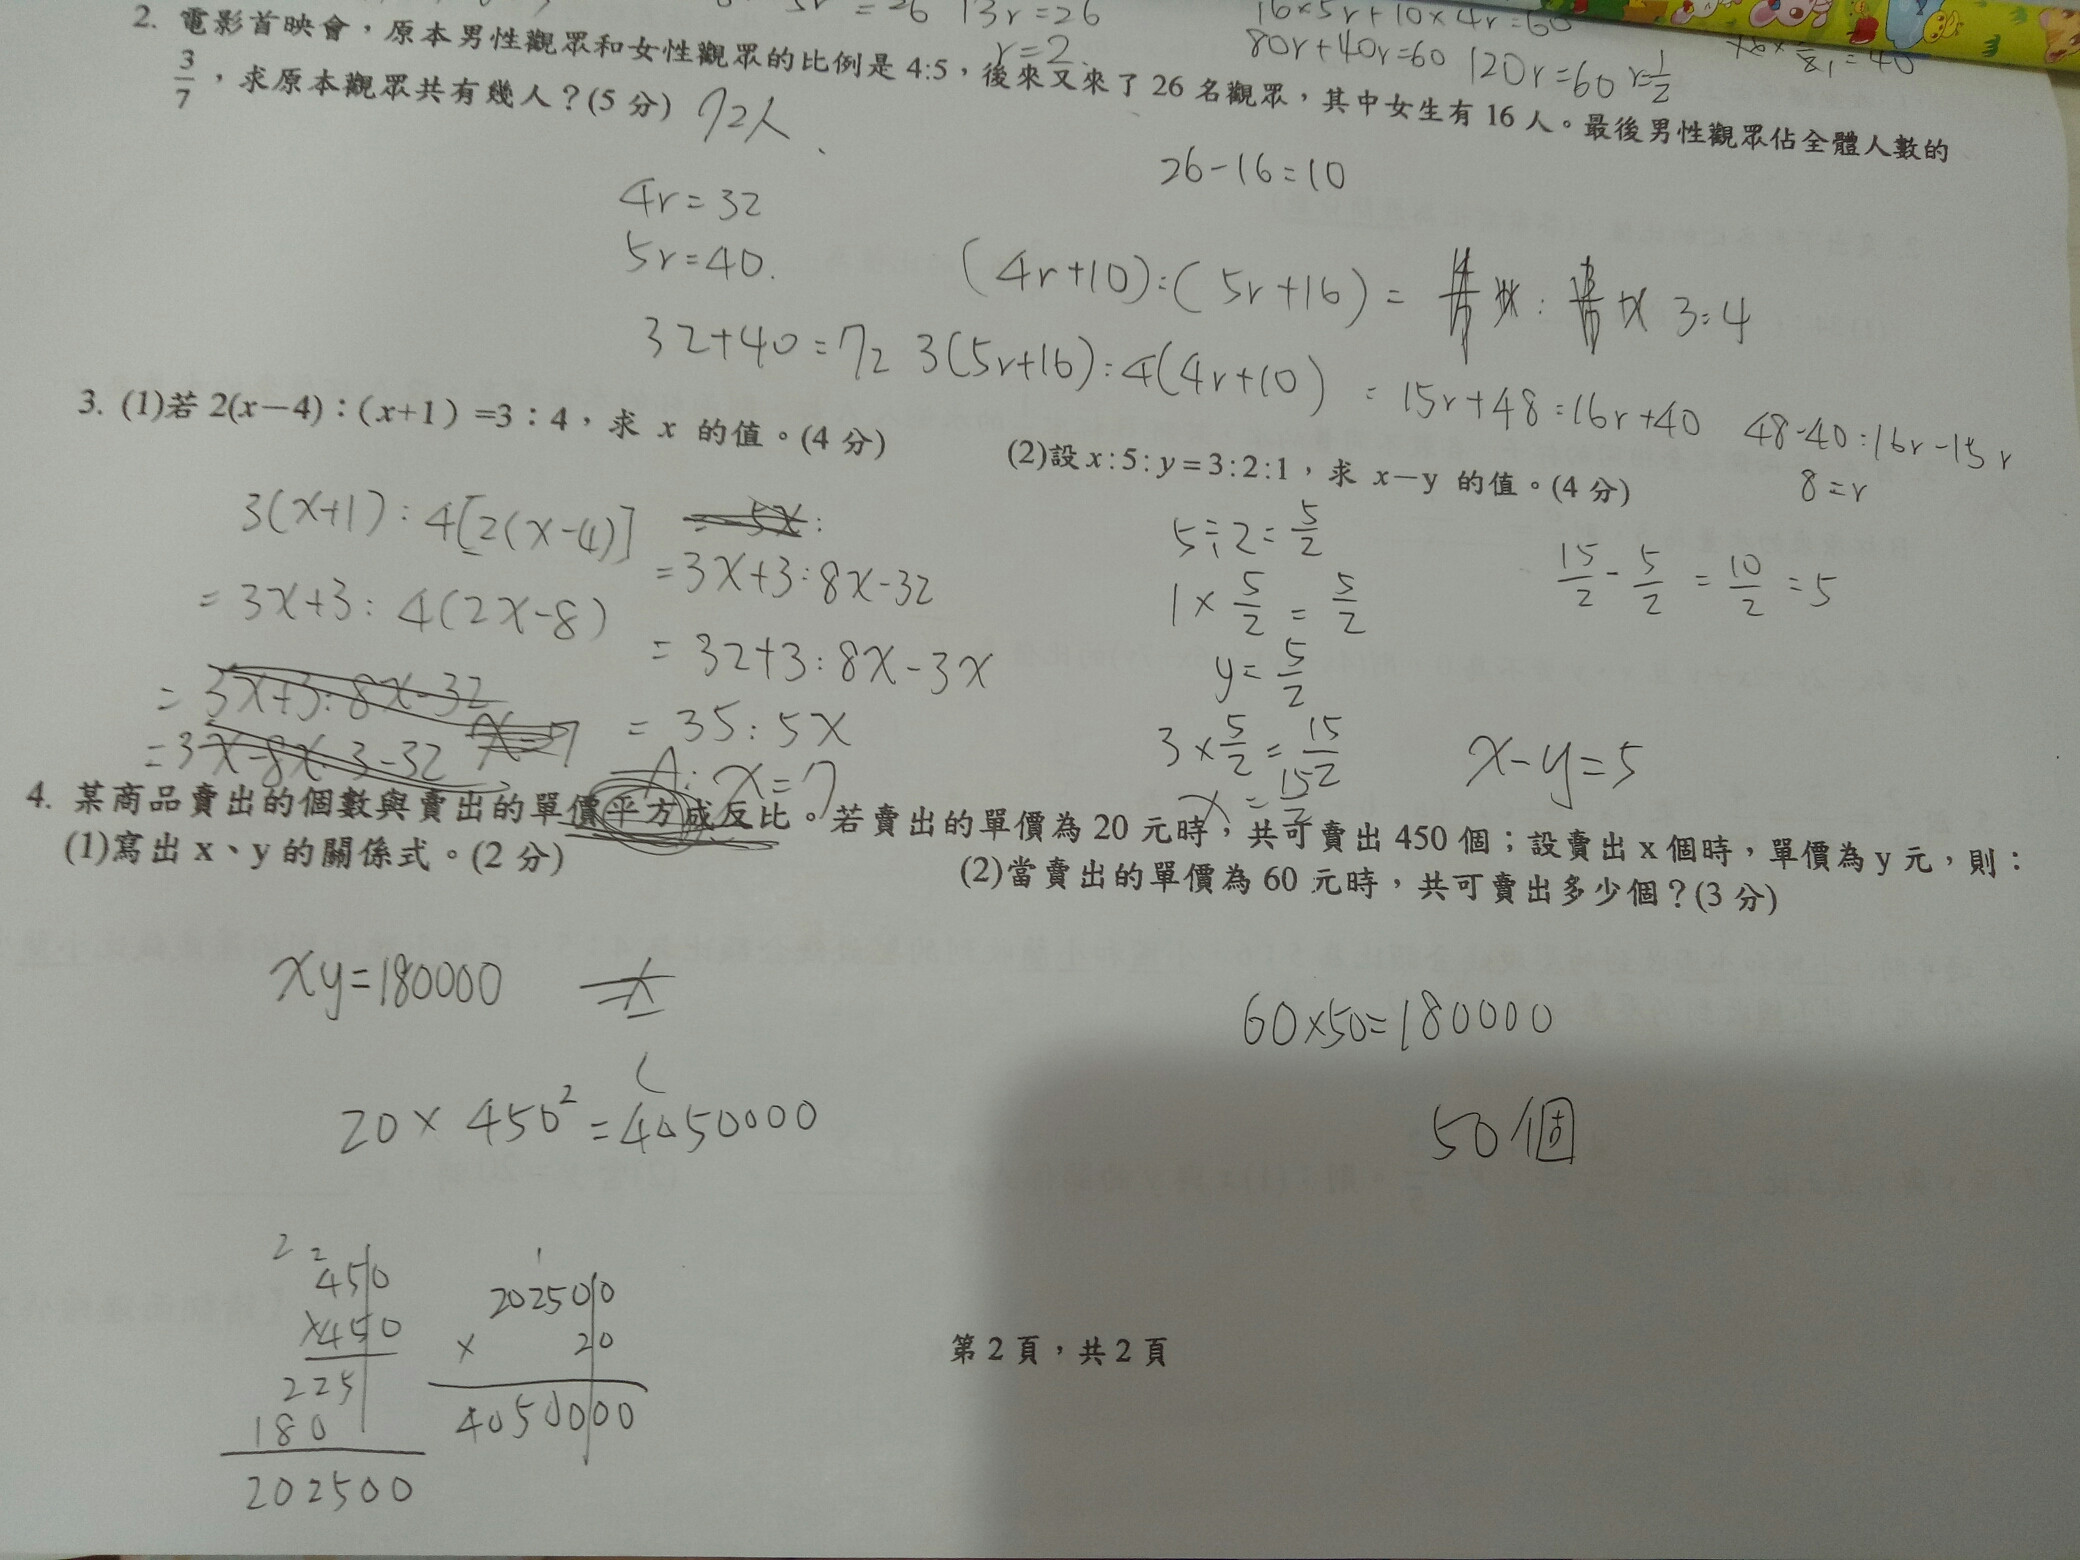 5r = 26 13r=26
r=2
16×5r+10×4r=60
80r+40r=60 120r=60 r=1/2
2. 電影首映會，原本男性觀眾和女性觀眾的比例是 4:5，後來又來了 26 名觀眾，其中女生有 16 人。最後男性觀眾佔全體人數的
3/7，求原本觀眾共有幾人？(5 分) 72人
26-16=10
4r=32
5r=40.
(4r+10):(5r+16)= 3:4
32+40=72
3(5r+16):4(4r+10) = 15r+48=16r+40
48-40=16r-15r
8=r
3. (1)若 2(x－4)：(x+1) =3：4，求 x 的值。(4 分)
3(x+1):4[2(x-4)]
= 3x+3:4(2x-8)
= 3x+3:8x-32
= 3x-8x:3-32 x=7
= 5x:
=3x+3:8x-32
= 32+3:8x-3x
= 35:5x
A:x=7
(2)設 x:5:y=3:2:1，求 x－y 的值。(4 分)
5÷2=5/2
1×5/2=5/2
y=5/2
3×5/2=15/2
x=15/2
15/2-5/2=10/2=5
x-y=5
4. 某商品賣出的個數與賣出的單價平方成反比。若賣出的單價為 20 元時，共可賣出 450 個；設賣出 x 個時，單價為 y 元，則：
(1)寫出 x、y 的關係式。(2 分)
xy=180000
20×450²=4050000
450
×450
225
180
202500
202500
× 20
4050000
(2)當賣出的單價為 60 元時，共可賣出多少個？(3 分)
60×50=180000
50個
第 2 頁，共 2 頁